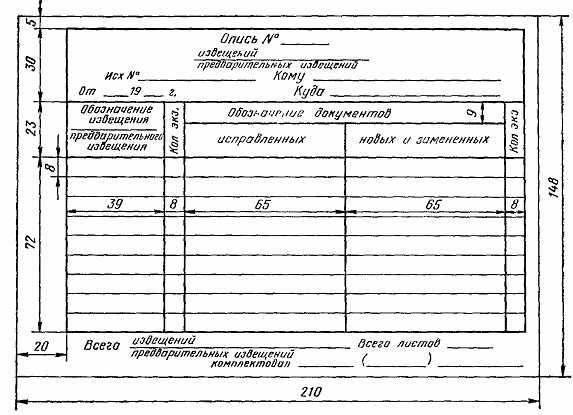 5
Опись № ____
извещений
предварительных извещений
30
Исх № ____ Кому ____
От ___19 __ г. Куда ____
Обозначение извещения
предварительного извещения
Кол экз.
Обозначение документов
9
Кол экз
23
исправленных
новых и замененных
8
148
39
8
65
65
8
72
Всего извещений ____ Всего листов ____
предварительных извещений
20
комплектовал ____ (____) ____
210